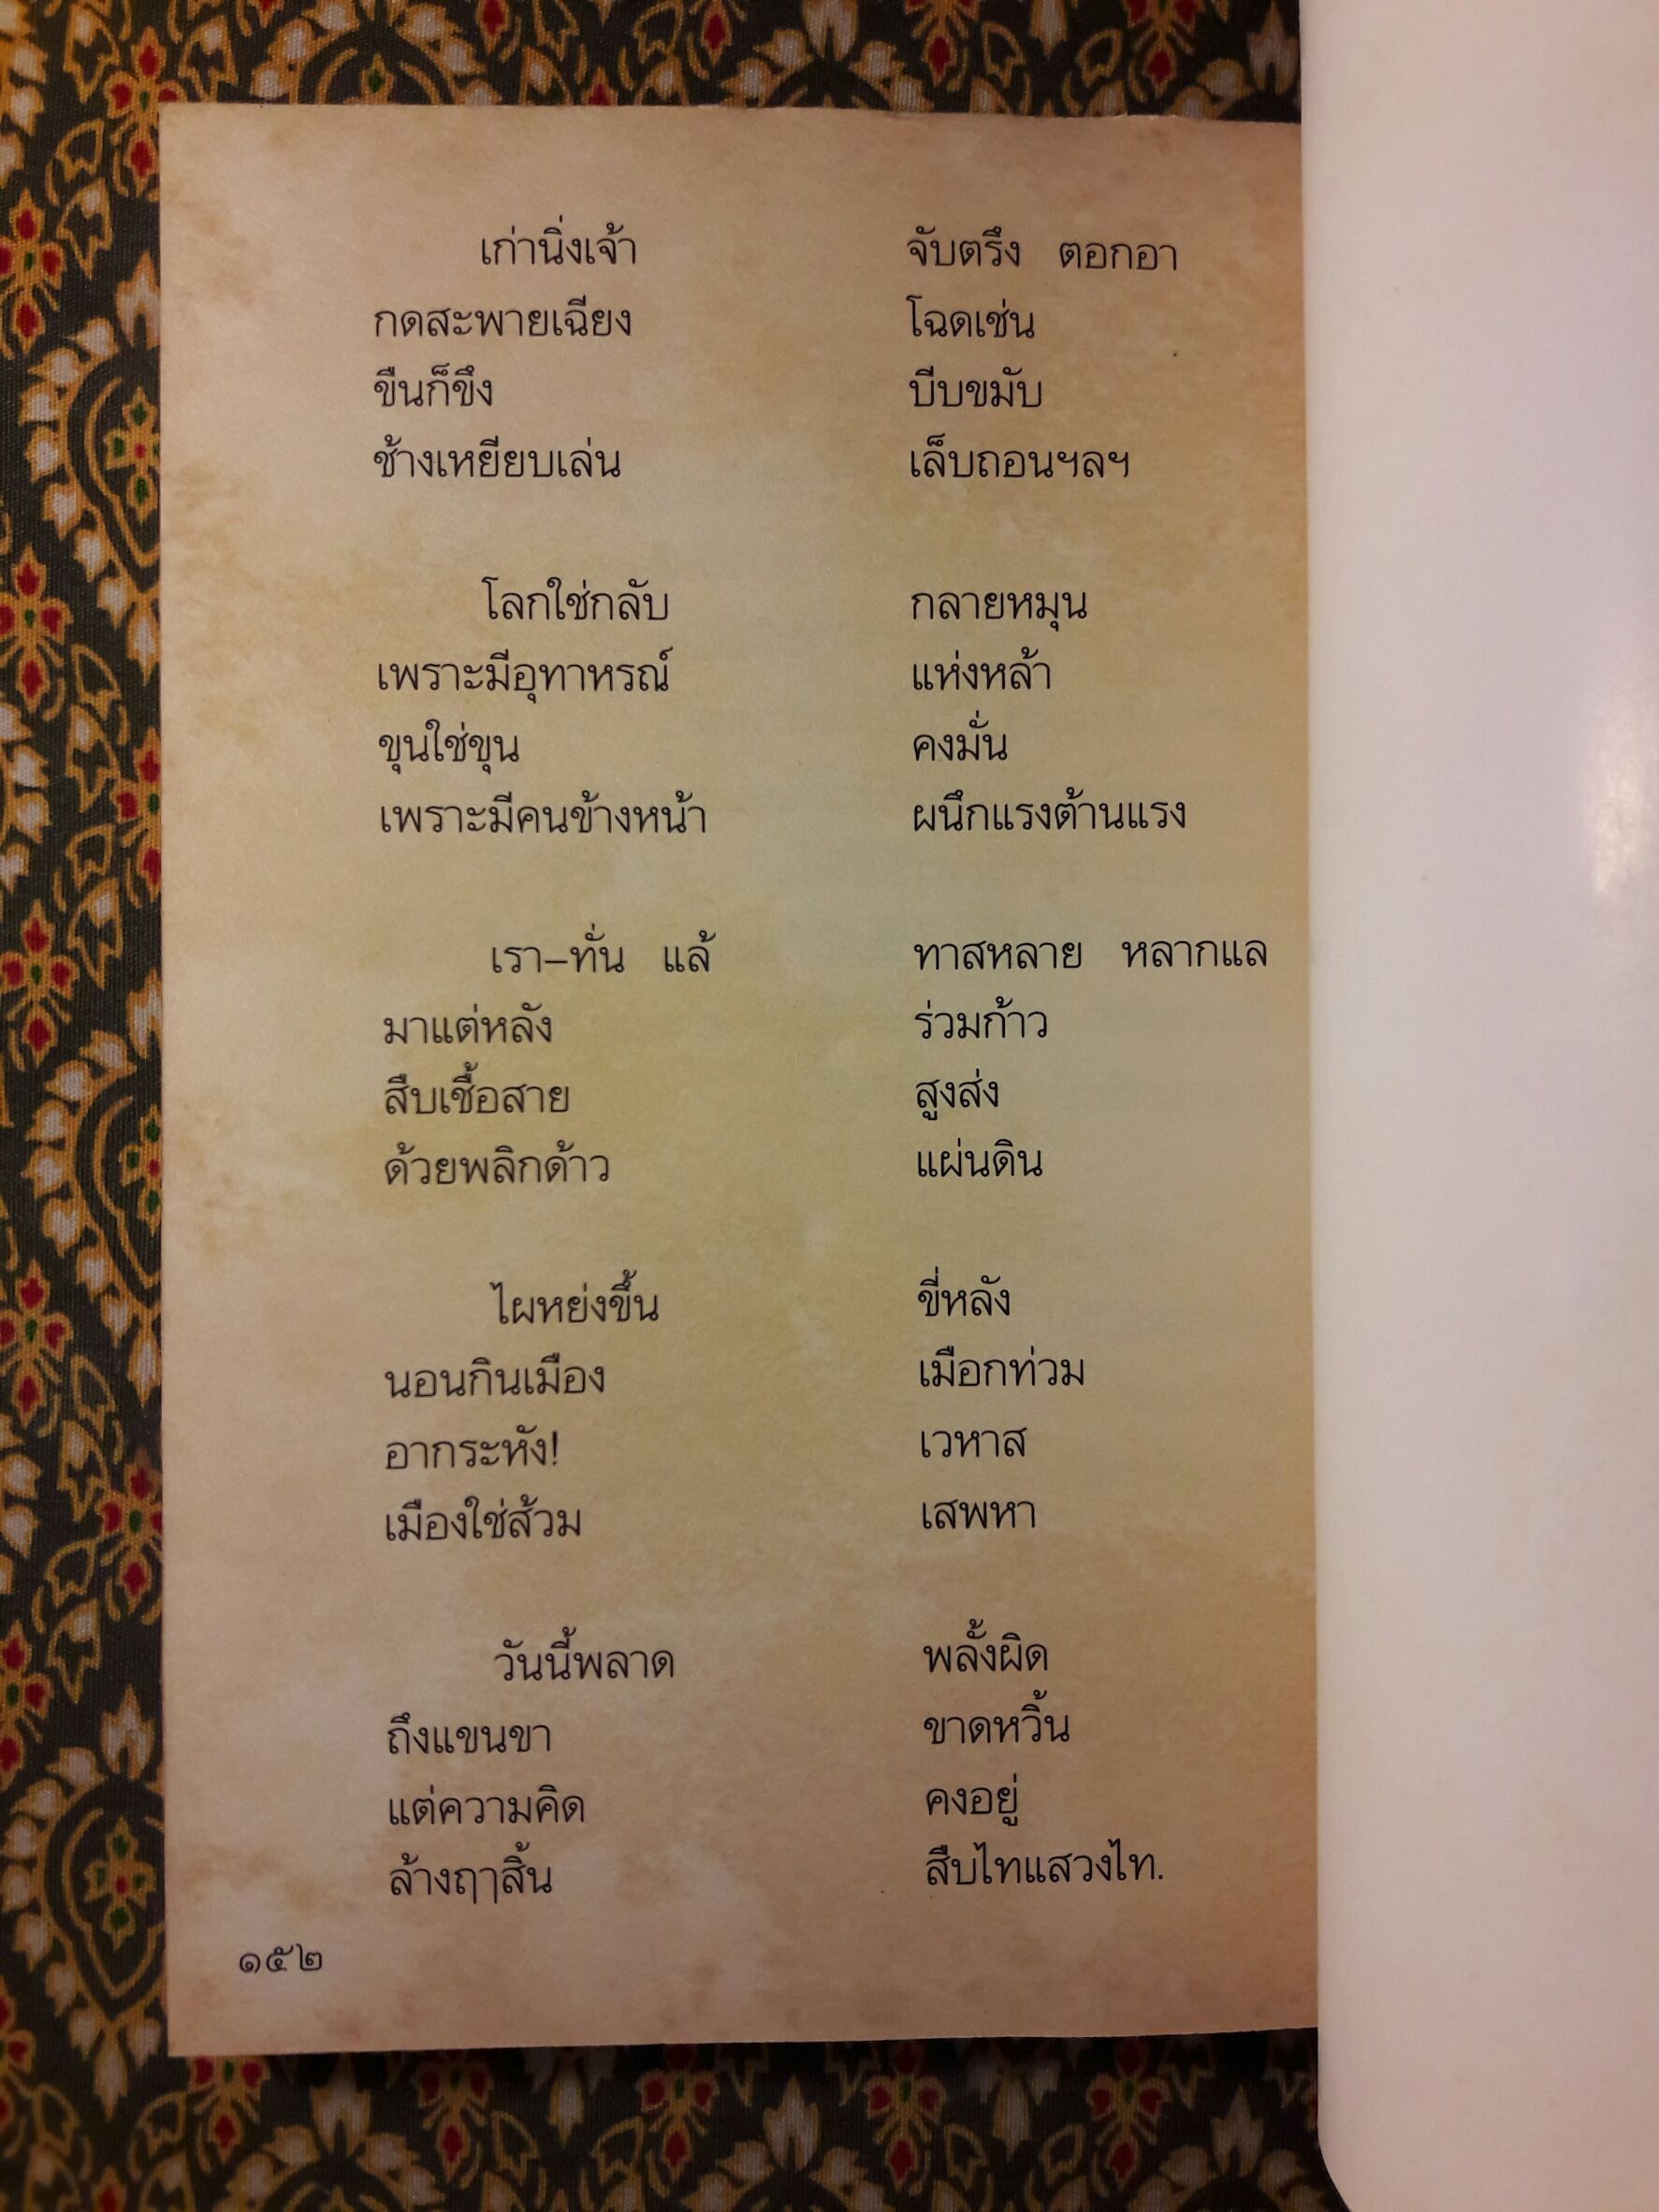 เก่านิ่งเจ้า จับตรึง ตอกอา
กดสะพายเฉียง โฉดเช่น
ขืนก็ขึง บีบขมับ
ช้างเหยียบเล่น เล็บถอนฯลฯ
โลกใช่กลับ กลายหมุน
เพราะมีอุทาหรณ์ แห่งหล้า
ขุนใช่ขุน คงมั่น
เพราะมีคนข้างหน้า ผนึกแรงต้านแรง
เรา–ทั่น แล้ ทาสหลาย หลากแล
มาแต่หลัง ร่วมก้าว
สืบเชื้อสาย สูงส่ง
ด้วยพลิกด้าว แผ่นดิน
ไผหย่งขึ้น ขี่หลัง
นอนกินเมือง เมือกท่วม
อากระหัง! เวหาส
เมืองใช่ส้วม เสพหา
วันนี้พลาด พลั้งผิด
ถึงแขนขา ขาดหวิ้น
แต่ความคิด คงอยู่
ล้างฤๅสิ้น สืบไทแสวงไท.
๑๕๒